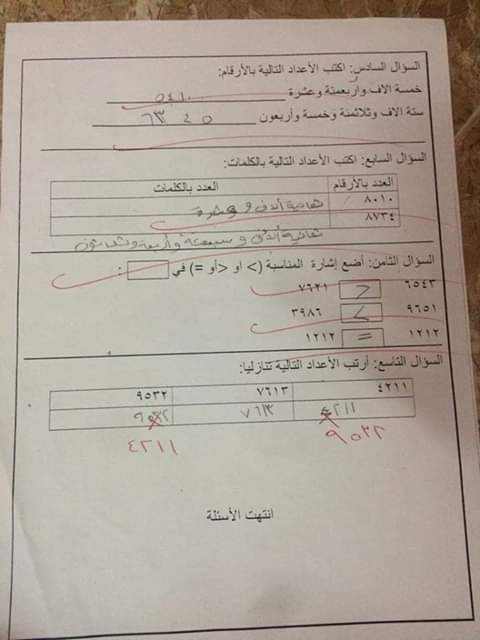 السؤال السادس: اكتب الأعداد التالية بالأرقام:
خمسة الاف وأربعمئة وعشرة ٥٤١٠
ستة الاف وثلاثمئة وخمسة وأربعون ٦٣٤٥
السؤال السابع: اكتب الأعداد التالية بالكلمات:
العدد بالأرقام العدد بالكلمات
٨٠١٠ ثمانية ألاف و عشرة
٨٧٣٤
ثمانية ألاف و سبعمئة وأربعة وثلاثون
السؤال الثامن: أضع إشارة المناسبة (> او <أو =) في :
٦٥٤٣ > ٧٦٢١
٩٦٥١ < ٣٩٨٦
١٢١٢ = ١٢١٢
السؤال التاسع: أرتب الأعداد التالية تنازليا:
٤٢١١ ٧٦١٣ ٩٥٣٢
٤٢١١ ٧٦١٣ ٩٥٣٢
٩٥٣٢ ٤٢١١
انتهت الأسئلة